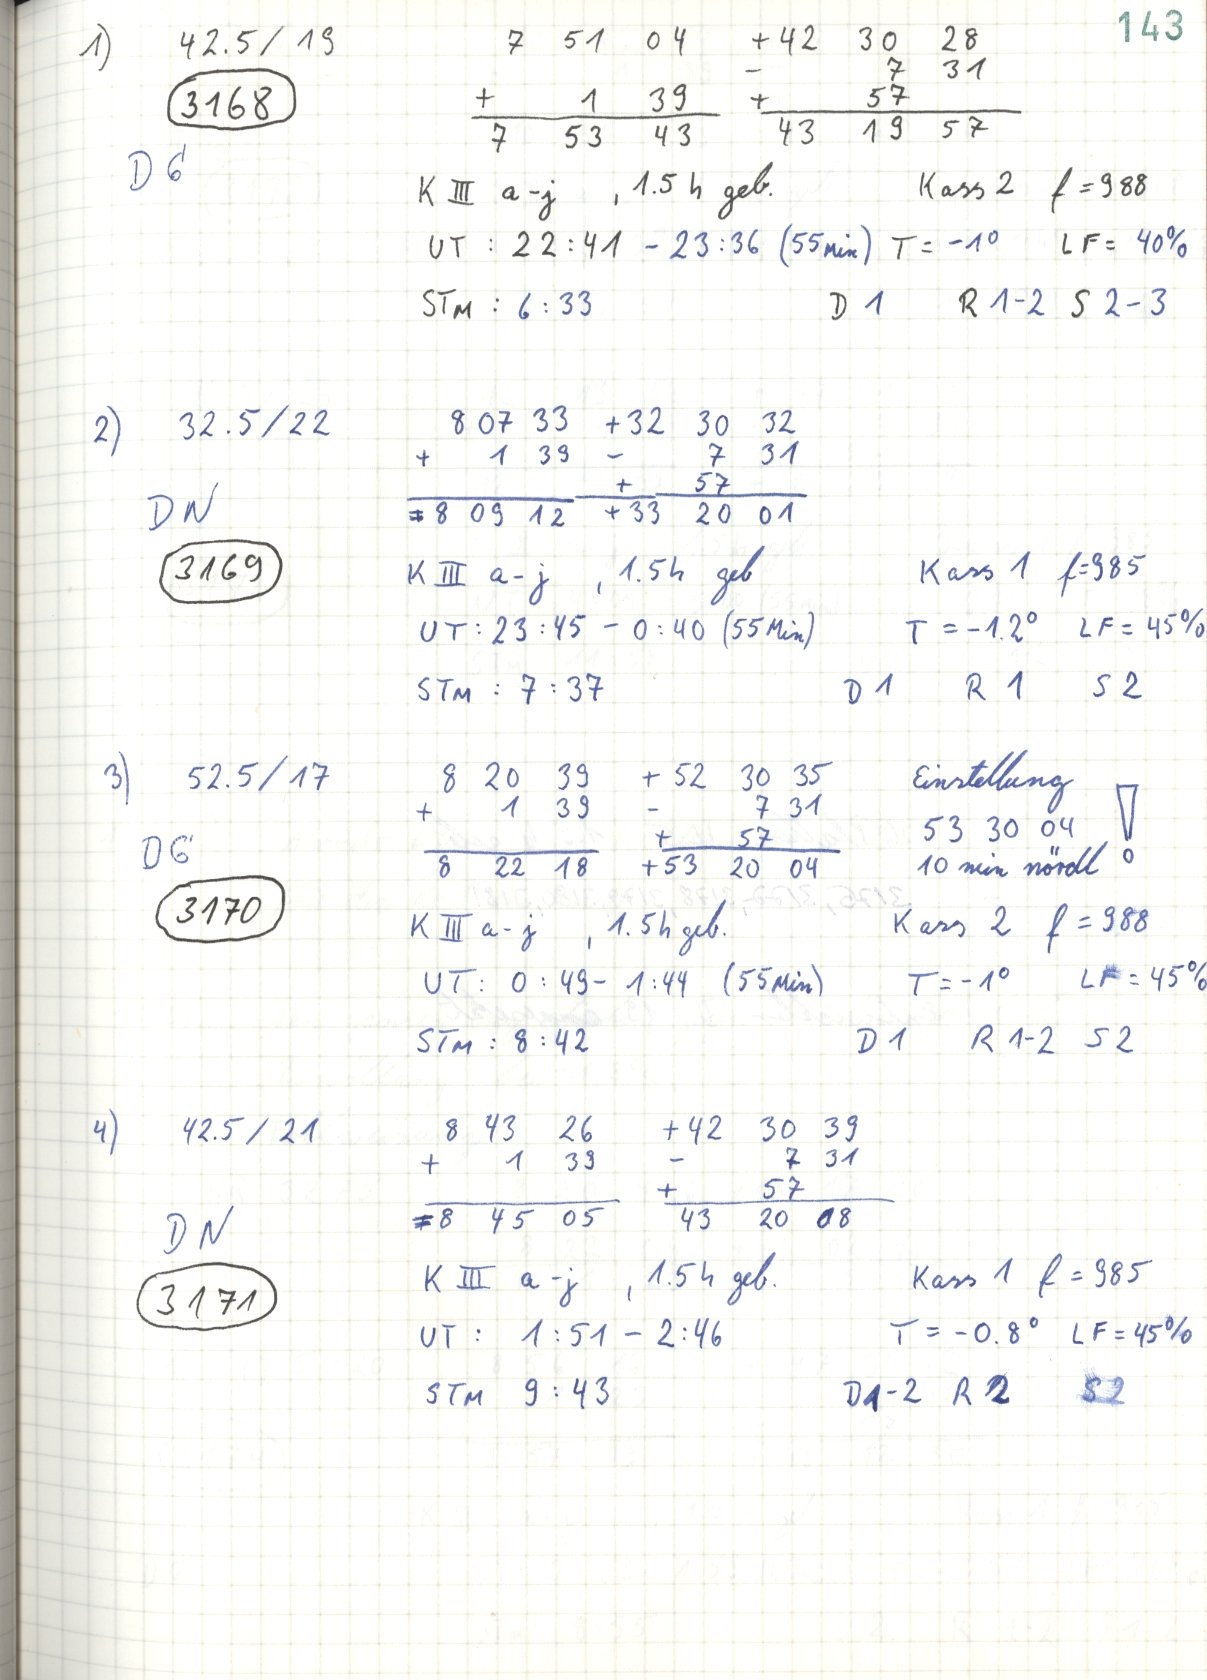 143
1) 42.5/19 7 51 04 +42 30 28
- 7 31
3168 + 1 39 + 57
7 53 43 43 19 57
D6
K III a-j , 1.5h geb. Kass 2 f=988
UT : 22:41 - 23:36 (55Min) T= -1° LF= 40%
STM : 6:33 D 1 R 1-2 S 2-3
2) 32.5/22 8 07 33 +32 30 32
+ 1 39 - 7 31
+ 57
DN =8 09 12 +33 20 01
3169 K III a-j , 1.5h geb Kass 1 f=985
UT: 23:45 - 0:40 (55Min) T = -1.2° LF= 45%
STM : 7:37 D 1 R 1 S 2
3) 52.5/17 8 20 39 + 52 30 35 Einstellung
+ 1 39 - 7 31 53 30 04 !
+ 57
D6 8 22 18 +53 20 04 10 min nördl
3170 K III a-j , 1.5h geb. Kass 2 f = 988
UT: 0:49- 1:44 (55Min) T= -1° LF = 45%
STM : 8:42 D 1 R 1-2 S 2
4) 42.5/21 8 43 26 +42 30 39
+ 1 39 - 7 31
+ 57
DN =8 45 05 43 20 08
3171 K III a-j , 1.5h geb. Kass 1 f = 985
UT: 1:51 - 2:46 T = -0.8° LF=45%
STM 9:43 D1-2 R 2 S2